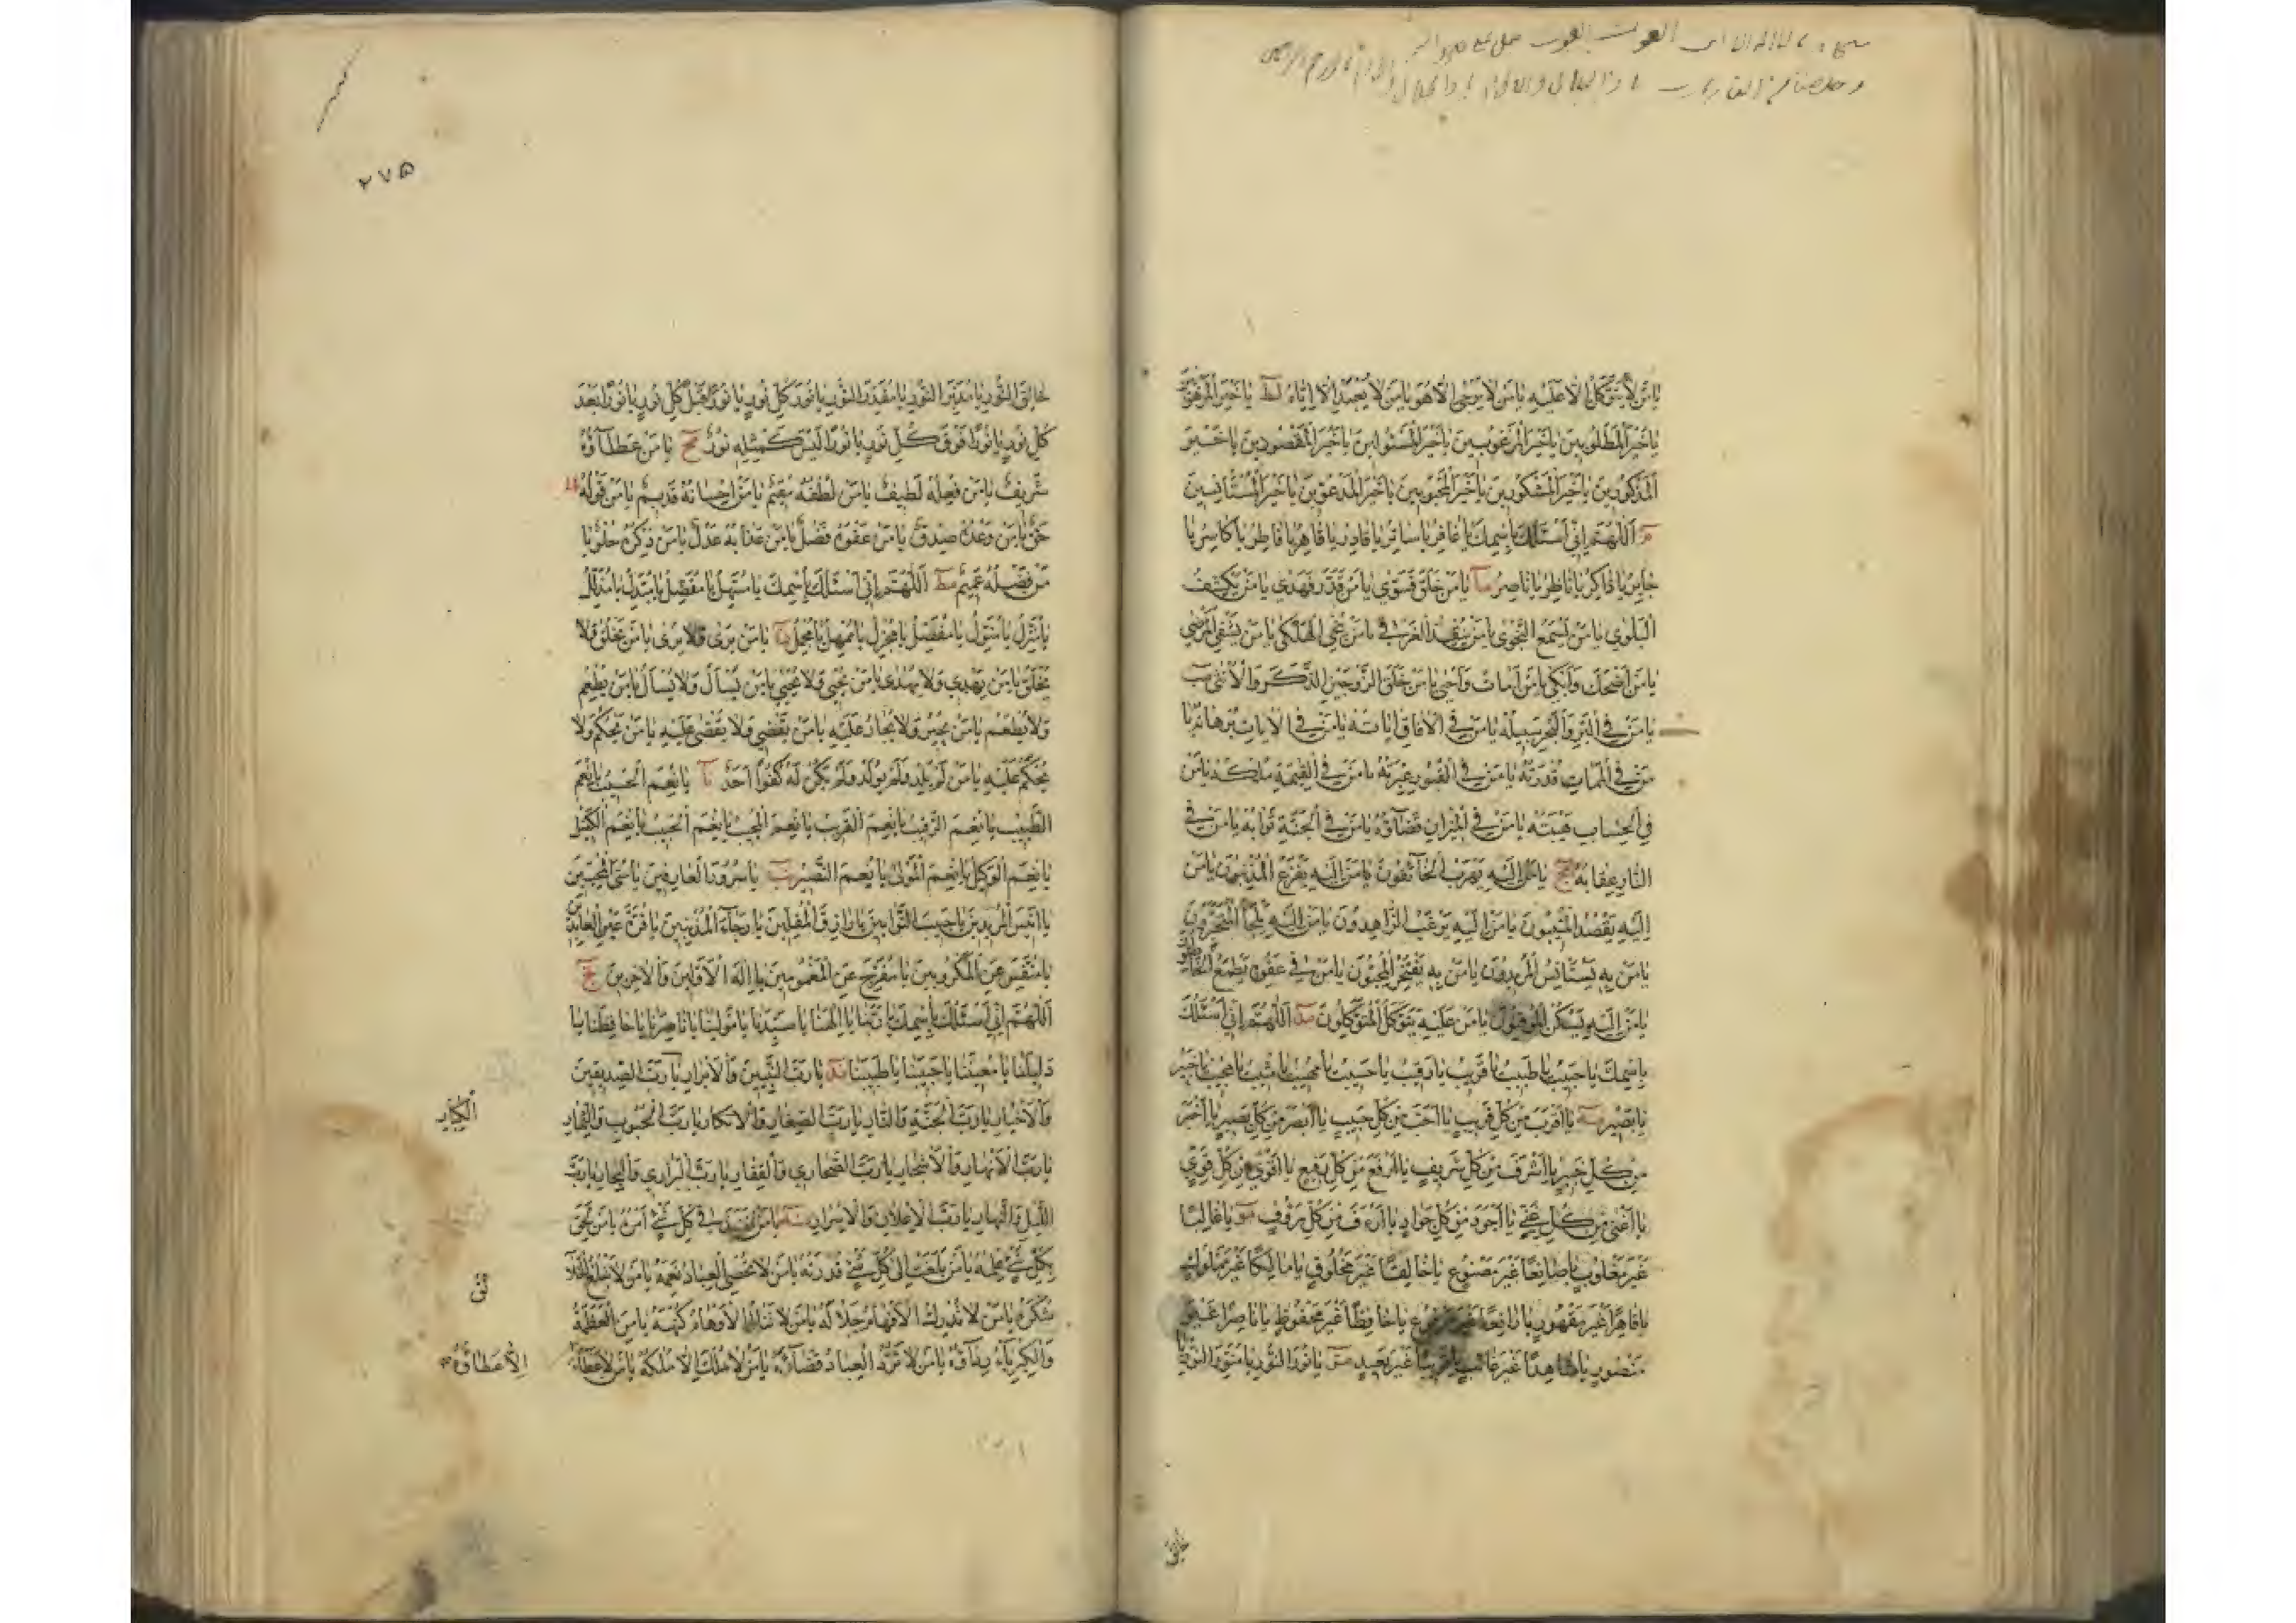 سبحانك يا لا اله الا انت الغوث الغوث صل على محمد واله
وخلصنا من النار يا رب يا ذا الجلال والاكرام يا ارحم الراحمين
يَامَنْ لَا يُتَوَكَّلُ اِلَّا عَلَيْهِ يَامَنْ لَا يُرْجٰى اِلَّا هُوَ يَامَنْ لَا يُعْبَدُ اِلَّا اِيَّاهُ لط يَاخَيْرَ الْمَرْهُوبِينَ
يَاخَيْرَ الْمَطْلُوبِينَ يَاخَيْرَ الْمَرْغُوبِينَ يَاخَيْرَ الْمَسْئُولِينَ يَاخَيْرَ الْمَقْصُودِينَ يَاخَيْرَ
الْمَذْكُورِينَ يَاخَيْرَ الْمَشْكُورِينَ يَاخَيْرَ الْمَحْبُوبِينَ يَاخَيْرَ الْمَدْعُوِّينَ يَاخَيْرَ الْمُسْتَأْنِسِينَ
م اَللّٰهُمَّ اِنِّي اَسْئَلُكَ بِاسْمِكَ يَاغَافِرُ يَاسَاتِرُ يَاقَادِرُ يَاقَاهِرُ يَافَاطِرُ يَاكَاسِرُ يَا
جَابِرُ يَاذَاكِرُ يَانَاظِرُ يَانَاصِرُ ما يَامَنْ خَلَقَ فَسَوّٰي يَامَنْ قَدَّرَ فَهَدٰي يَامَنْ يَكْشِفُ
الْبَلْوٰي يَامَنْ يَسْمَعُ النَّجْوٰي يَامَنْ يُنْقِذُ الْغَرْقٰي يَامَنْ يُنْجِي الْهَلْكٰي يَامَنْ يَشْفِي الْمَرْضٰي
يَامَنْ اَضْحَكَ وَاَبْكٰي يَامَنْ اَمَاتَ وَاَحْيٰي يَامَنْ خَلَقَ الزَّوْجَيْنِ الذَّكَرَ وَالْاُنْثٰي مب
يَامَنْ فِي الْبَرِّ وَالْبَحْرِ سَبِيلُهُ يَامَنْ فِي الْاٰفَاقِ اٰيَاتُهُ يَامَنْ فِي الْاٰيَاتِ بُرْهَانُهُ يَا
مَنْ فِي الْمَمَاتِ قُدْرَتُهُ يَامَنْ فِي الْقُبُورِ عِبْرَتُهُ يَامَنْ فِي الْقِيٰمَةِ مُلْكُهُ يَامَنْ
فِي الْحِسَابِ هَيْبَتُهُ يَامَنْ فِي الْمِيزَانِ قَضَاؤُهُ يَامَنْ فِي الْجَنَّةِ ثَوَابُهُ يَامَنْ فِي
النَّارِ عِقَابُهُ مج يَامَنْ اِلَيْهِ يَهْرَبُ الْخَائِفُونَ يَامَنْ اِلَيْهِ يَفْزَعُ الْمُذْنِبُونَ يَامَنْ
اِلَيْهِ يَقْصُدُ الْمُنِيبُونَ يَامَنْ اِلَيْهِ يَرْغَبُ الزَّاهِدُونَ يَامَنْ اِلَيْهِ يَلْجَأُ الْمُتَحَيِّرُونَ
يَامَنْ بِهِ يَسْتَأْنِسُ الْمُرِيدُونَ يَامَنْ بِهِ يَفْتَخِرُ الْمُحِبُّونَ يَامَنْ فِي عَفْوِهِ يَطْمَعُ الْخَاطِئُونَ
يَامَنْ اِلَيْهِ يَسْكُنُ الْمُوقِنُونَ يَامَنْ عَلَيْهِ يَتَوَكَّلُ الْمُتَوَكِّلُونَ مد اَللّٰهُمَّ اِنِّي اَسْئَلُكَ
بِاسْمِكَ يَاحَبِيبُ يَاطَبِيبُ يَاقَرِيبُ يَارَقِيبُ يَاحَسِيبُ يَامُهِيبُ يَامُثِيبُ يَامُجِيبُ يَاخَبِيرُ
يَابَصِيرُ مه يَااَقْرَبَ مِنْ كُلِّ قَرِيبٍ يَااَحَبَّ مِنْ كُلِّ حَبِيبٍ يَااَبْصَرَ مِنْ كُلِّ بَصِيرٍ يَااَخْبَرَ
مِنْ كُلِّ خَبِيرٍ يَااَشْرَفَ مِنْ كُلِّ شَرِيفٍ يَااَرْفَعَ مِنْ كُلِّ رَفِيعٍ يَااَقْوٰي مِنْ كُلِّ قَوِيٍّ
يَااَغْنٰي مِنْ كُلِّ غَنِيٍّ يَااَجْوَدَ مِنْ كُلِّ جَوَادٍ يَااَرْءَفَ مِنْ كُلِّ رَؤُوفٍ مو يَاغَالِبًا
غَيْرَ مَغْلُوبٍ يَاصَانِعًا غَيْرَ مَصْنُوعٍ يَاخَالِقًا غَيْرَ مَخْلُوقٍ يَامَالِكًا غَيْرَ مَمْلُوكٍ
يَاقَاهِرًا غَيْرَ مَقْهُورٍ يَارَافِعًا غَيْرَ مَرْفُوعٍ يَاحَافِظًا غَيْرَ مَحْفُوظٍ يَانَاصِرًا غَيْرَ
مَنْصُورٍ يَاشَاهِدًا غَيْرَ غَائِبٍ يَاقَرِيبًا غَيْرَ بَعِيدٍ مز يَانُورَ النُّورِ يَامُنَوِّرَ النُّورِ يَا
خالق
۲۷۵
خَالِقَ النُّورِ يَامُدَبِّرَ النُّورِ يَامُقَدِّرَ النُّورِ يَانُورَ كُلِّ نُورٍ يَانُورًا قَبْلَ كُلِّ نُورٍ يَانُورًا بَعْدَ
كُلِّ نُورٍ يَانُورًا فَوْقَ كُلِّ نُورٍ يَانُورًا لَيْسَ كَمِثْلِهِ نُورٌ مح يَامَنْ عَطَاؤُهُ
شَرِيفٌ يَامَنْ فِعْلُهُ لَطِيفٌ يَامَنْ لُطْفُهُ مُقِيمٌ يَامَنْ اِحْسَانُهُ قَدِيمٌ يَامَنْ قَوْلُهُ
حَقٌّ يَامَنْ وَعْدُهُ صِدْقٌ يَامَنْ عَفْوُهُ فَضْلٌ يَامَنْ عَذَابُهُ عَدْلٌ يَامَنْ ذِكْرُهُ حُلْوٌ يَا
مَنْ فَضْلُهُ عَمِيمٌ مط اَللّٰهُمَّ اِنِّي اَسْئَلُكَ بِاسْمِكَ يَامُسَهِّلُ يَامُفَصِّلُ يَامُبَدِّلُ يَامُذَلِّلُ
يَامُنَزِّلُ يَامُنَوِّلُ يَامُفْضِلُ يَامُجْزِلُ يَامُمْهِلُ يَامُجْمِلُ ن يَامَنْ يَرٰى وَلَا يُرٰى يَامَنْ يَخْلُقُ وَلَا
يُخْلَقُ يَامَنْ يَهْدِي وَلَا يُهْدٰى يَامَنْ يُحْيِي وَلَا يُحْيٰي يَامَنْ يَسْأَلُ وَلَا يُسْأَلُ يَامَنْ يُطْعِمُ
وَلَا يُطْعَمُ يَامَنْ يُجِيرُ وَلَا يُجَارُ عَلَيْهِ يَامَنْ يَقْضِي وَلَا يُقْضٰى عَلَيْهِ يَامَنْ يَحْكُمُ وَلَا
يُحْكَمُ عَلَيْهِ يَامَنْ لَمْ يَلِدْ وَلَمْ يُولَدْ وَلَمْ يَكُنْ لَهُ كُفُوًا اَحَدٌ نا يَانِعْمَ الْحَسِيبُ يَانِعْمَ
الطَّبِيبُ يَانِعْمَ الرَّقِيبُ يَانِعْمَ الْقَرِيبُ يَانِعْمَ الْمُجِيبُ يَانِعْمَ الْحَبِيبُ يَانِعْمَ الْكَفِيلُ
يَانِعْمَ الْوَكِيلُ يَانِعْمَ الْمَوْلٰى يَانِعْمَ النَّصِيرُ نب يَاسُرُورَ الْعَارِفِينَ يَامُنَى الْمُحِبِّينَ
يَااَنِيسَ الْمُرِيدِينَ يَاحَبِيبَ التَّوَّابِينَ يَارَازِقَ الْمُقِلِّينَ يَارَجَاءَ الْمُذْنِبِينَ يَاقُرَّةَ عَيْنِ الْعَابِدِينَ
يَامُنَفِّسَ عَنِ الْمَكْرُوبِينَ يَامُفَرِّجَ عَنِ الْمَغْمُومِينَ يَااِلٰهَ الْاَوَّلِينَ وَالْاٰخِرِينَ نج
اَللّٰهُمَّ اِنِّي اَسْئَلُكَ بِاسْمِكَ يَارَبَّنَا يَااِلٰهَنَا يَاسَيِّدَنَا يَامَوْلٰينَا يَانَاصِرَنَا يَاحَافِظَنَا يَا
دَلِيلَنَا يَامُعِينَنَا يَاحَبِيبَنَا يَاطَبِيبَنَا ند يَارَبَّ النَّبِيِّينَ وَالْاَبْرَارِ يَارَبَّ الصِّدِّيقِينَ
وَالْاَخْيَارِ يَارَبَّ الْجَنَّةِ وَالنَّارِ يَارَبَّ الصِّغَارِ وَالْاَنْكَارِ يَارَبَّ الْحُبُوبِ وَالثِّمَارِ
الْكِبَارِ
يَارَبَّ الْاَنْهَارِ وَالْاَشْجَارِ يَارَبَّ الصَّحَارِي وَالْقِفَارِ يَارَبَّ الْبَرَارِي وَالْبِحَارِ يَارَبَّ
اللَّيْلِ وَالنَّهَارِ يَارَبَّ الْاِعْلَانِ وَالْاِسْرَارِ نه يَامَنْ نَفَذَ فِي كُلِّ شَيْءٍ اَمْرُهُ يَامَنْ لَحِقَ
بِكُلِّ شَيْءٍ عِلْمُهُ يَامَنْ بَلَغَتْ اِلٰى كُلِّ شَيْءٍ قُدْرَتُهُ يَامَنْ لَا تُحْصِي الْعِبَادُ نِعَمَهُ يَامَنْ لَا تَبْلُغُ الْخَلَا
ئِقُ
شُكْرَهُ يَامَنْ لَا تُدْرِكُ الْاَفْهَامُ جَلَالَهُ يَامَنْ لَا تَنَالُ الْاَوْهَامُ كُنْهَهُ يَامَنِ الْعَظَمَةُ
وَالْكِبْرِيَاءُ رِدَاؤُهُ يَامَنْ لَا تَرُدُّ الْعِبَادُ قَضَاءَهُ يَامَنْ لَا مُلْكَ اِلَّا مُلْكُهُ يَامَنْ لَا عَطَاءَ
اِلَّا عَطَاؤُهُ